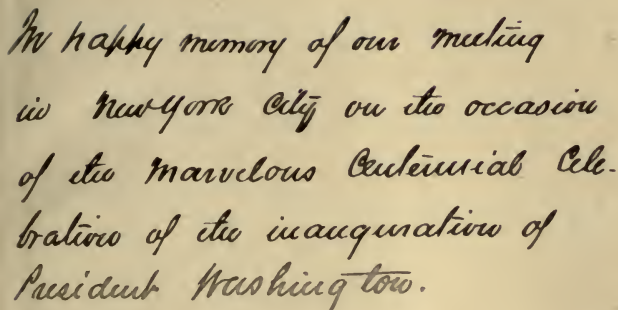 In happy memory of our meeting
in New York City on the occasion
of the marvelous Centennial Cele-
bration of the inauguration of
President Washington.